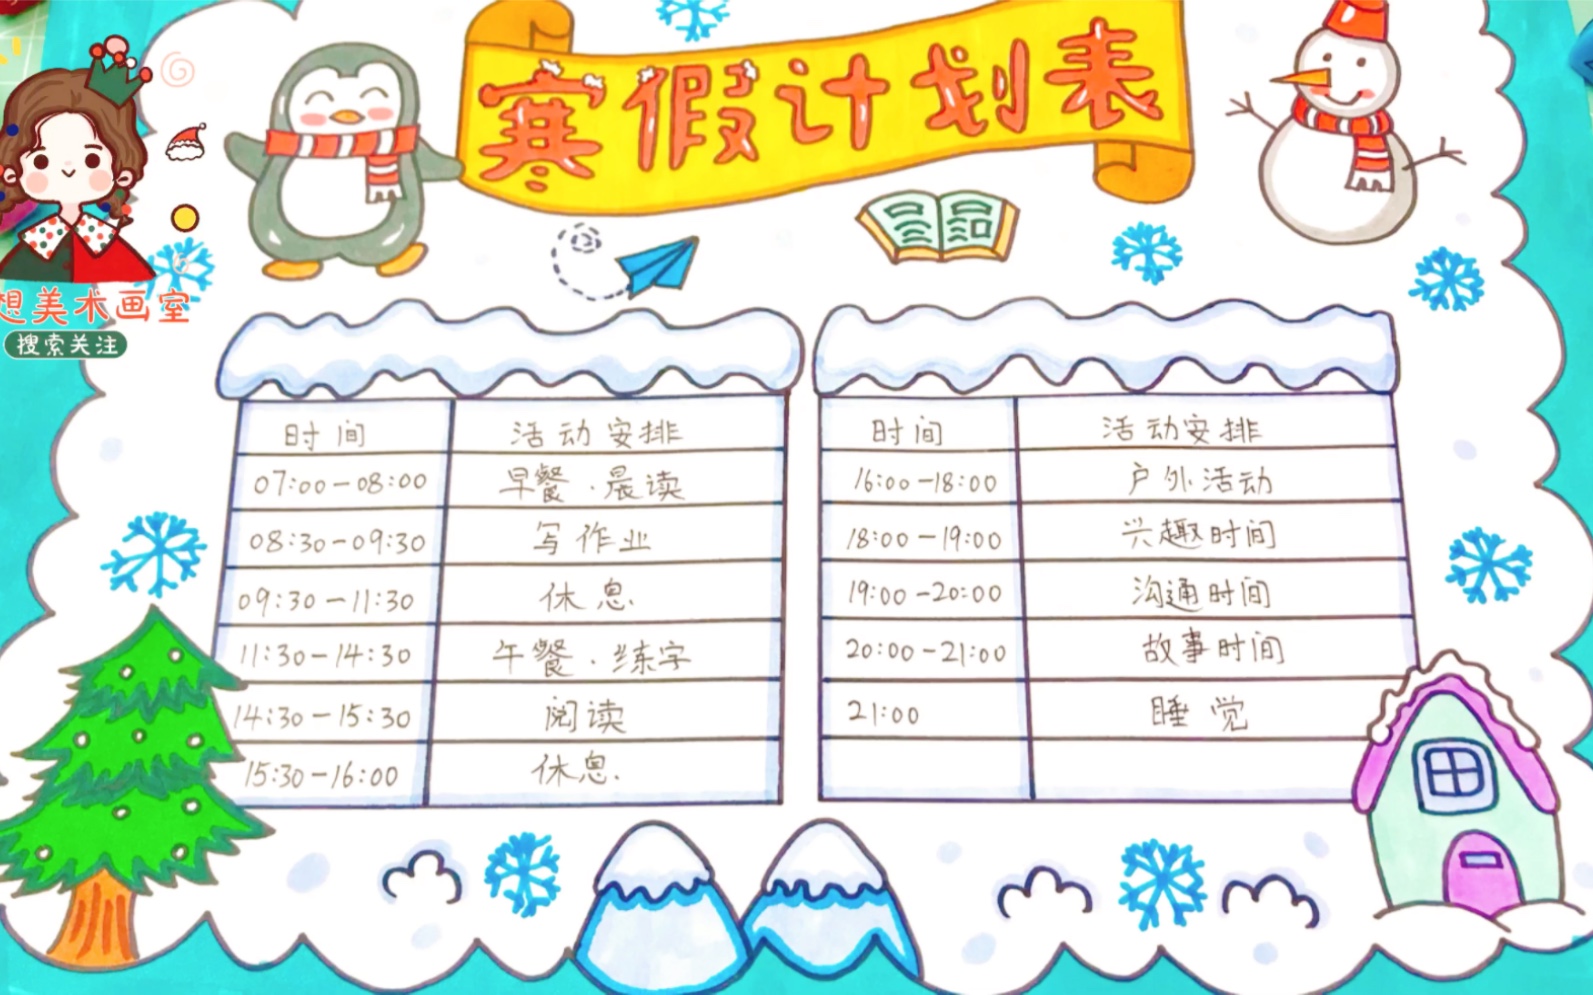 寒假计划表
想美术画室
搜索关注
时间 活动安排
07:00-08:00 早餐.晨读
08:30-09:30 写作业
09:30-11:30 休息.
11:30-14:30 午餐.练字
14:30-15:30 阅读
15:30-16:00 休息.
时间 活动安排
16:00-18:00 户外活动
18:00-19:00 兴趣时间
19:00-20:00 沟通时间
20:00-21:00 故事时间
21:00 睡觉